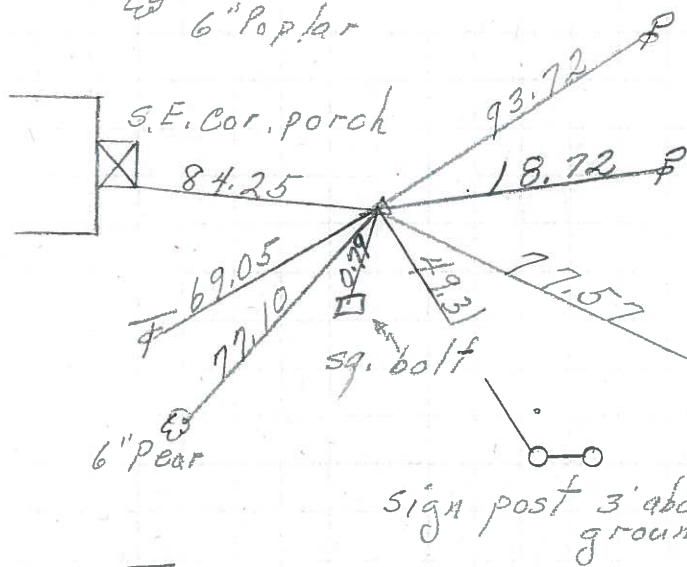 6" Poplar
S.E. Cor. porch
93.72
84.25
18.72
69.05
0.79
49.31
77.57
77.10
sq. bolt
6" Pear
sign post 3' abo
groun